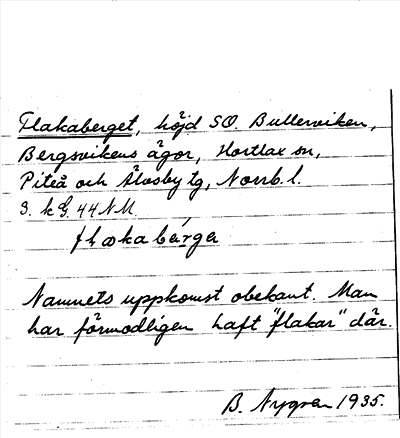 Flakaberget, höjd SO. Bullerviken,
Bergsvikens ägor, Hortlax sn,
Piteå och Älvsby tg, Norrb. l.
3. k G. 44 N M.
flakabärga
Namnets uppkomst obekant. Man
har förmodligen haft "flakar" där.
B. Nygren 1935.